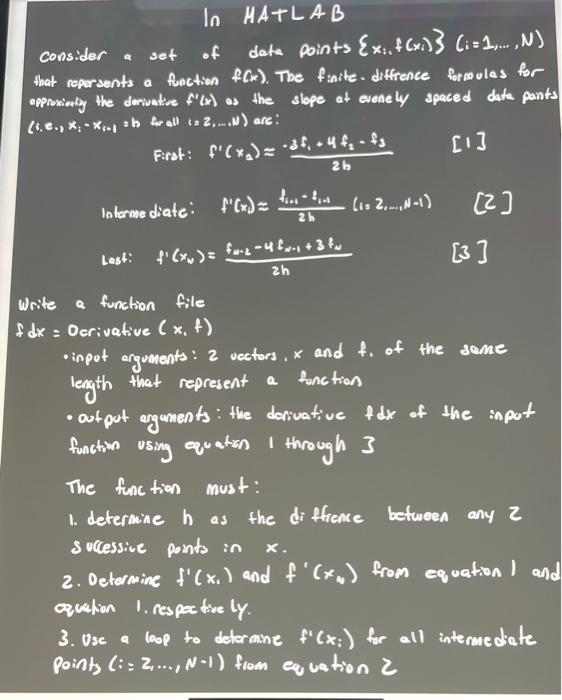 In MATLAB
Consider a set of data points {xᵢ, f(xᵢ)} (i=1,...,N)
that repersents a function f(x). The finite-diffrence formulas for
the derivative f'(x) as the slope at evenely spaced data points
(i.e., xᵢ - xᵢ₋₁ = h for all i=2,...,N) are:
First: f'(x₁) ≈ (-3f₁ + 4f₂ - f₃) / 2h [1]
Intermediate: f'(xᵢ) ≈ (fᵢ₊₁ - fᵢ₋₁) / 2h (i=2,...,N-1) [2]
Last: f'(x_N) ≈ (f_N-2 - 4f_N-1 + 3f_N) / 2h [3]
Write a function file
fdx = Derivative (x, f)
•input arguments: 2 vectors, x and f, of the same
length that represent a function
•output arguments: the derivative fdx of the input
function using equation 1 through 3
The function must:
1. determine h as the diffrence between any 2
successive points in x.
2. Determine f'(x₁) and f'(x_N) from equation 1 and
equation 1. respectively.
3. Use a loop to determine f'(xᵢ) for all intermediate
points (i=2,...,N-1) from equation 2